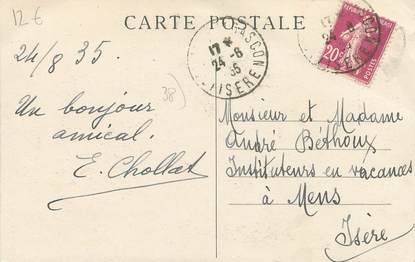 12€
CARTE POSTALE
24/8 35.
38)
Un bonjour
amical.
E. Chollat
17 *
24 -8
35
ISERE
20c
POSTES
Monsieur et Madame
André Béthoux
Instituteurs en vacances
à Mens
Isère